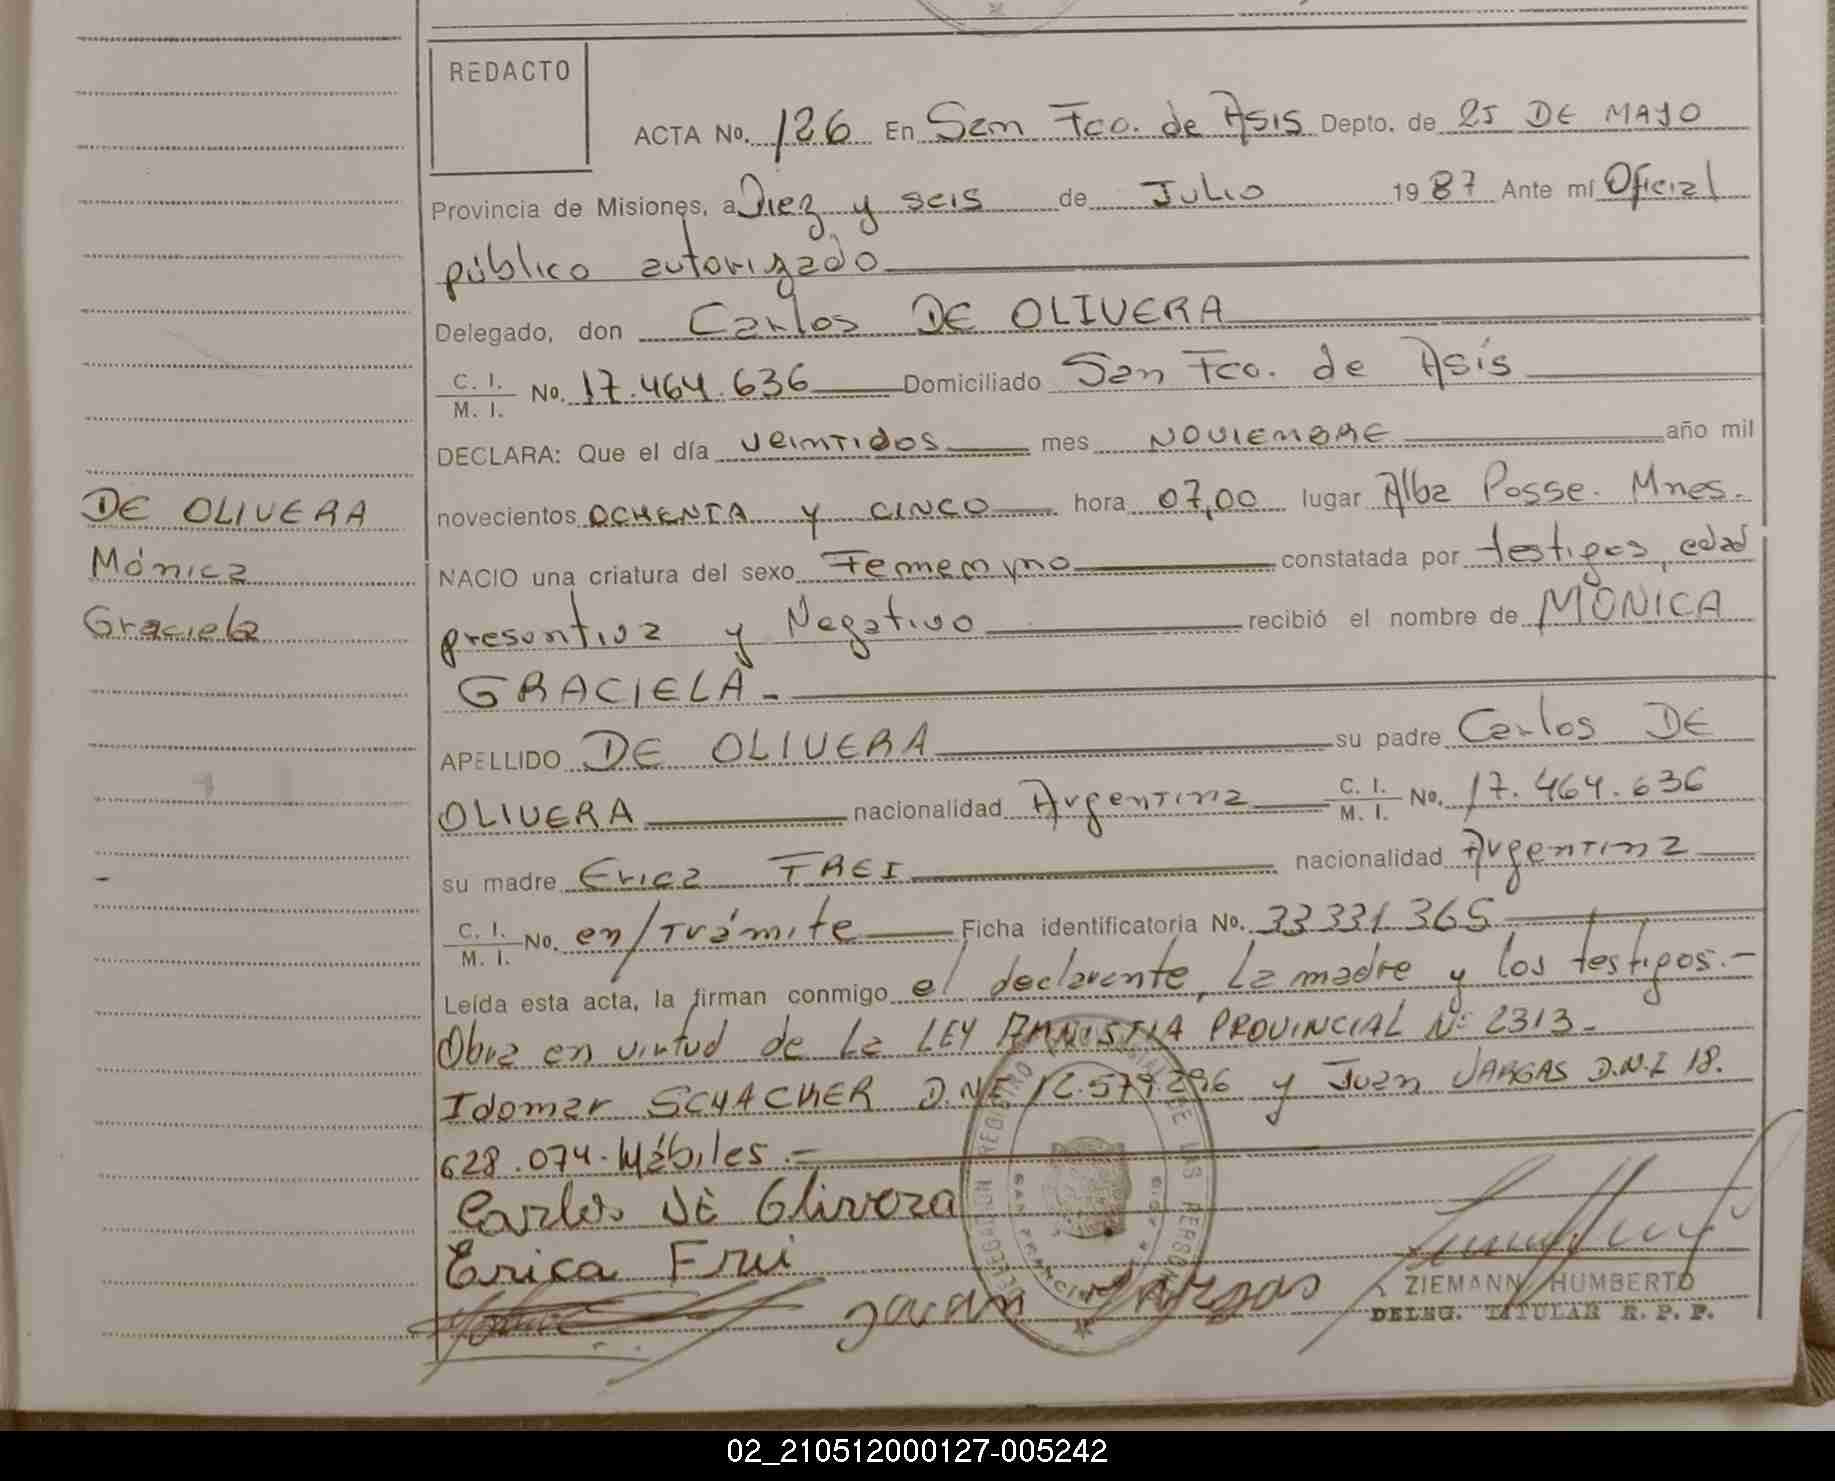 REDACTO
ACTA No. 126 En San Fco. de Asis Depto. de 25 DE MAYO
Provincia de Misiones, a Diez y seis de Julio 1987 Ante mí Oficial
público autorizado
Delegado, don Carlos DE OLIVERA
C. I. / M. I. No. 17.464.636 Domiciliado San Fco. de Asís
DECLARA: Que el día veintidos mes NOVIEMBRE año mil
novecientos OCHENTA y CINCO hora 07,00 lugar Alba Posse. Mnes.
DE OLIVERA
Mónica
Graciela
NACIO una criatura del sexo Femenino constatada por testigos, edad
presuntiva y Negativo recibió el nombre de MÓNICA
GRACIELA.-
APELLIDO DE OLIVERA su padre Carlos DE
OLIVERA nacionalidad Argentina C. I. / M. I. No. 17.464.636
su madre Erica FREI nacionalidad Argentina
C. I. / M. I. No. en/Trámite Ficha identificatoria No. 33331365
Leída esta acta, la firman conmigo el declarante, La madre y los testigos.-
Obra en virtud de la LEY AMNISTIA PROVINCIAL Nº 2313-
Idomar SCHACHER D.N.I. 12.579.296 y Juan VARGAS D.N.I 18.
628.074. Hábiles.-
Carlos DE Olivera
Erica Frei
Juan Vargas
ZIEMANN HUMBERTO
DELEG. TITULAR R. P. P.
02_210512000127-005242